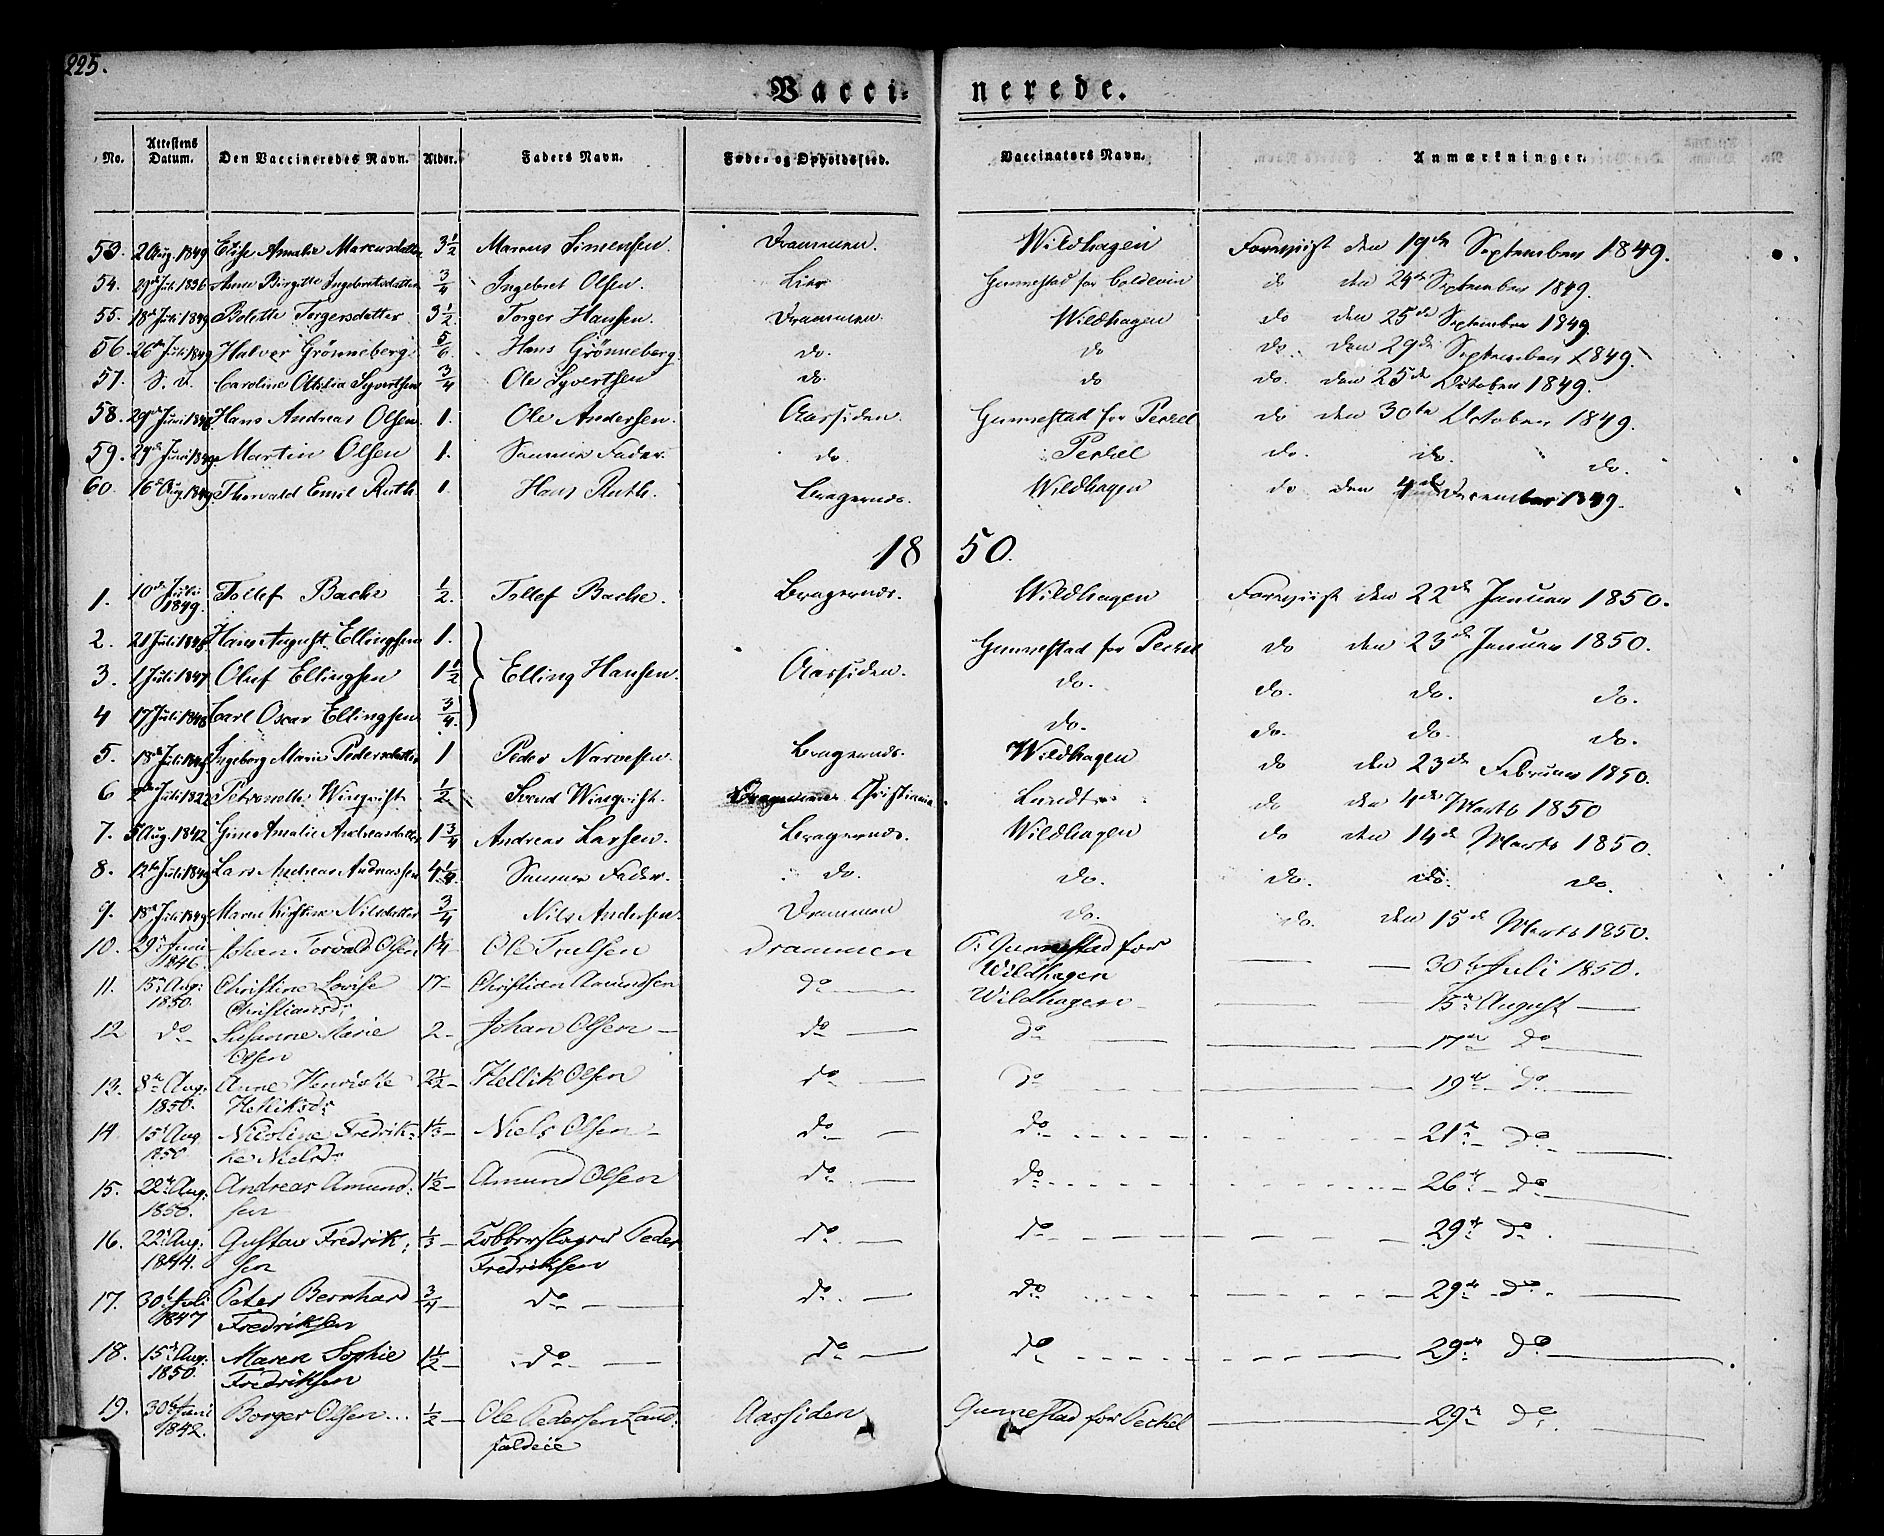 225.
Vacci- nerede.
No. Attestens Datum. Den Vaccineredes Navn. Alder. Faders Navn. Føde- og Opholdssted. Vaccinators Navn. Anmærkninger.
53. 2 Aug. 1849 Elise Amalie Marcusdatter 3 1/2 Marcus Simensen. Drammen. Wildhagen Foreviist den 19de September 1849.
54. Juli 1836 Anne Birgitte Ingebretsdatter 3/4 Ingebret Olsen. Lier Gunnestad for Coldevin do den 24de September 1849.
55. 18de Juli 1849 Bolette Torgersdatter 3 1/2. Torger Hansen. Drammen. Wildhagen do den 25de September 1849
56. 26de Juli 1849 Halver Grönneberg. 5/6. Hans Grönneberg. do. do do. den 29de September 1849.
57. S. D. Caroline Othilia Syvertsen 3/4 Ole Syvertsen do. do do. den 25de October 1849.
58. 29de Juni Hans Andreas Olsen. 1. Ole Andersen. Aassiden. Gunnestad for Peckel do den 30te October 1849.
59. Juni Martin Olsen 1. Samme Fader. do. Peckel do. do. do.
60. 16de Aug. 1849 Thorvald Emil Ruth. 1. Hans Ruth. Bragernæs. Wildhagen do den 4de December 1849.
18 50.
1. 10de Juli 1849. Tollef Bache 1/2. Tollef Bache. Bragernæs. Wildhagen Foreviist den 22de Januar 1850.
2. 21 Juli Hans August Ellingsen 1. Gunnestad for Peckel do den 23de Januar 1850.
3. 1 Juli 1847 Oluf Ellingsen 1 1/2 Elling Hansen. Aassiden. do. do. do. do.
4 17 Juli 1848 Carl Oscar Ellingsen 3/4. do. do. do. do.
5. 18de Juli Ingeborg Marie Pedersdatter 1 Peder Narvesen. Bragernæs. Wildhagen do den 23de Februar 1850.
6 Juli 1822 Petronelle Winqvist 1/2 Svend Winqvist. Christiania. Lundt do den 4de Marts 1850
7. 5 Aug. 1842 Gine Amalie Andreasdatter 1 3/4 Andreas Larsen. Bragernæs. Wildhagen do den 14de Marts 1850.
8. 12te Juli 1849 Lars Andreas Andreassen 4 1/4. Samme Fader. do. do. do. do. do.
9. 18de Juli 1849 Maren Kirstine Nilsdatter 3/4 Nils Andersen. Drammen do. do. den 15de Marts 1850.
10. 29de Juni 1846. Johan Torvald Olsen Ole Truelsen Drammen T. Gunnestad for Wildhagen — — 30te Juli 1850.
11. 15de Aug: 1850. Christine Lovise Christiansd: 17- Christian Amundsen do — Wildhagen — — 15de August —
12 do Susanne Marie Olsen 2- Johan Olsen — do — do — 17de do
13. 8de Aug: 1850. Anne Henrikke Helliksd: 2 1/2 - Hellik Olsen do — do — 19de do —
14 15de Aug 1850 Nicoline Fredrik-ke Nielsd: 1 1/3 - Niels Olsen - do. — do - - - 21de - do
15. 22de Aug: 1850. Andreas Amund: sen 1 1/2 - Amund Olsen do. — do. - - - 26de - do
16. 22de Aug: 1844. Gustav Fredrik: sen 1/3 - Kobberslager Peder Fredriksen do. — do - - - 29de do.
17. 30te Juli 1847 Peter Bernhard Fredriksen 3/4 - do — do. — do - - - 29de - do.
18. 15de Aug: 1850. Maren Sophie Fredriksen 1 1/2 - do — do — do - - - 29de do —
19. 30te Juni 1842. Borger Olsen... 1/2 - Ole Pedersen Land: faldeie Aassiden Gunnestad for Peckel — 29de do: